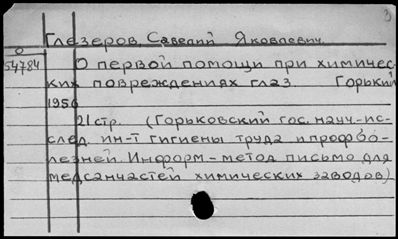 Глезеров, Савелий Яковлевич.
О
54784
О первой помощи при химичес-
ких повреждениях глаз Горький
1956
21стр. (Горьковский гос. науч.-ис-
след. ин-т гигиены труда и профбо-
лезней. Информ-метод письмо для
медсанчастей химических заводов)